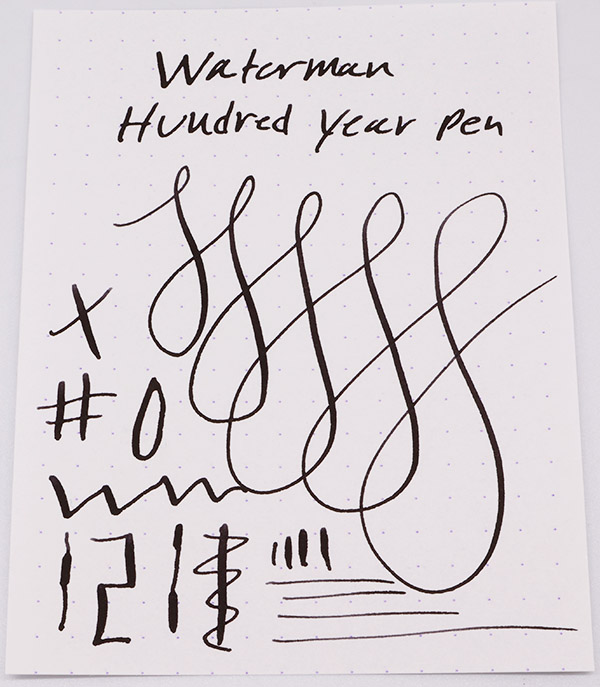 Waterman
Hundred Year Pen
X
# 0